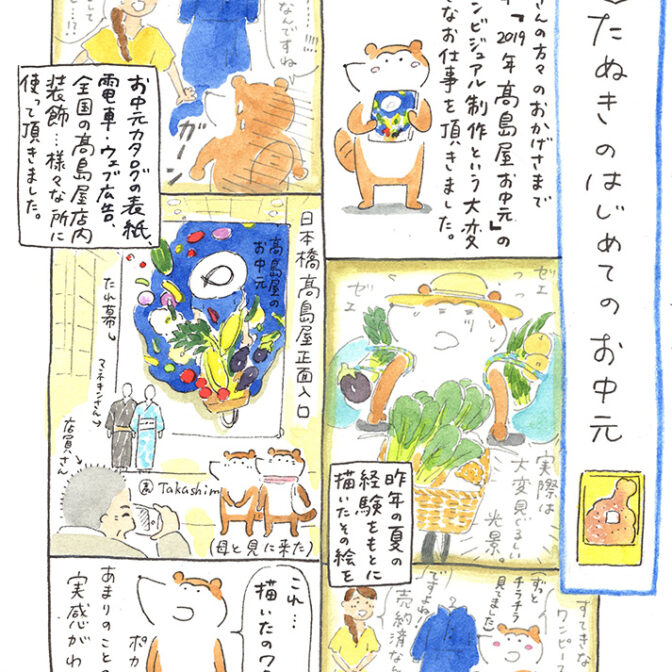 たぬきのはじめてのお中元
さんの方々のおかげさまで
「2019年髙島屋お中元」の
ンビジュアル制作という大変
なお仕事を頂きました。
ゼエ
ゼエ
実際は
大変見ぐるしい
光景。
昨年の夏の
経験をもとに
描いたその絵を
すてきな
ワンピース
ずっと
チラチラ
見てました
ですよね
売約済なん
なんですね
ガーン
お中元カタログの表紙、
電車・ウェブ広告、
全国の髙島屋店内
装飾…様々な所に
使って頂きました。
日本橋髙島屋正面入口
髙島屋の
お中元
たれ幕
マネキンさん
店員さん
髙 Takashim
(母と見に来た)
これ…
描いたのワ
ポカ
あまりのことの
実感がわ